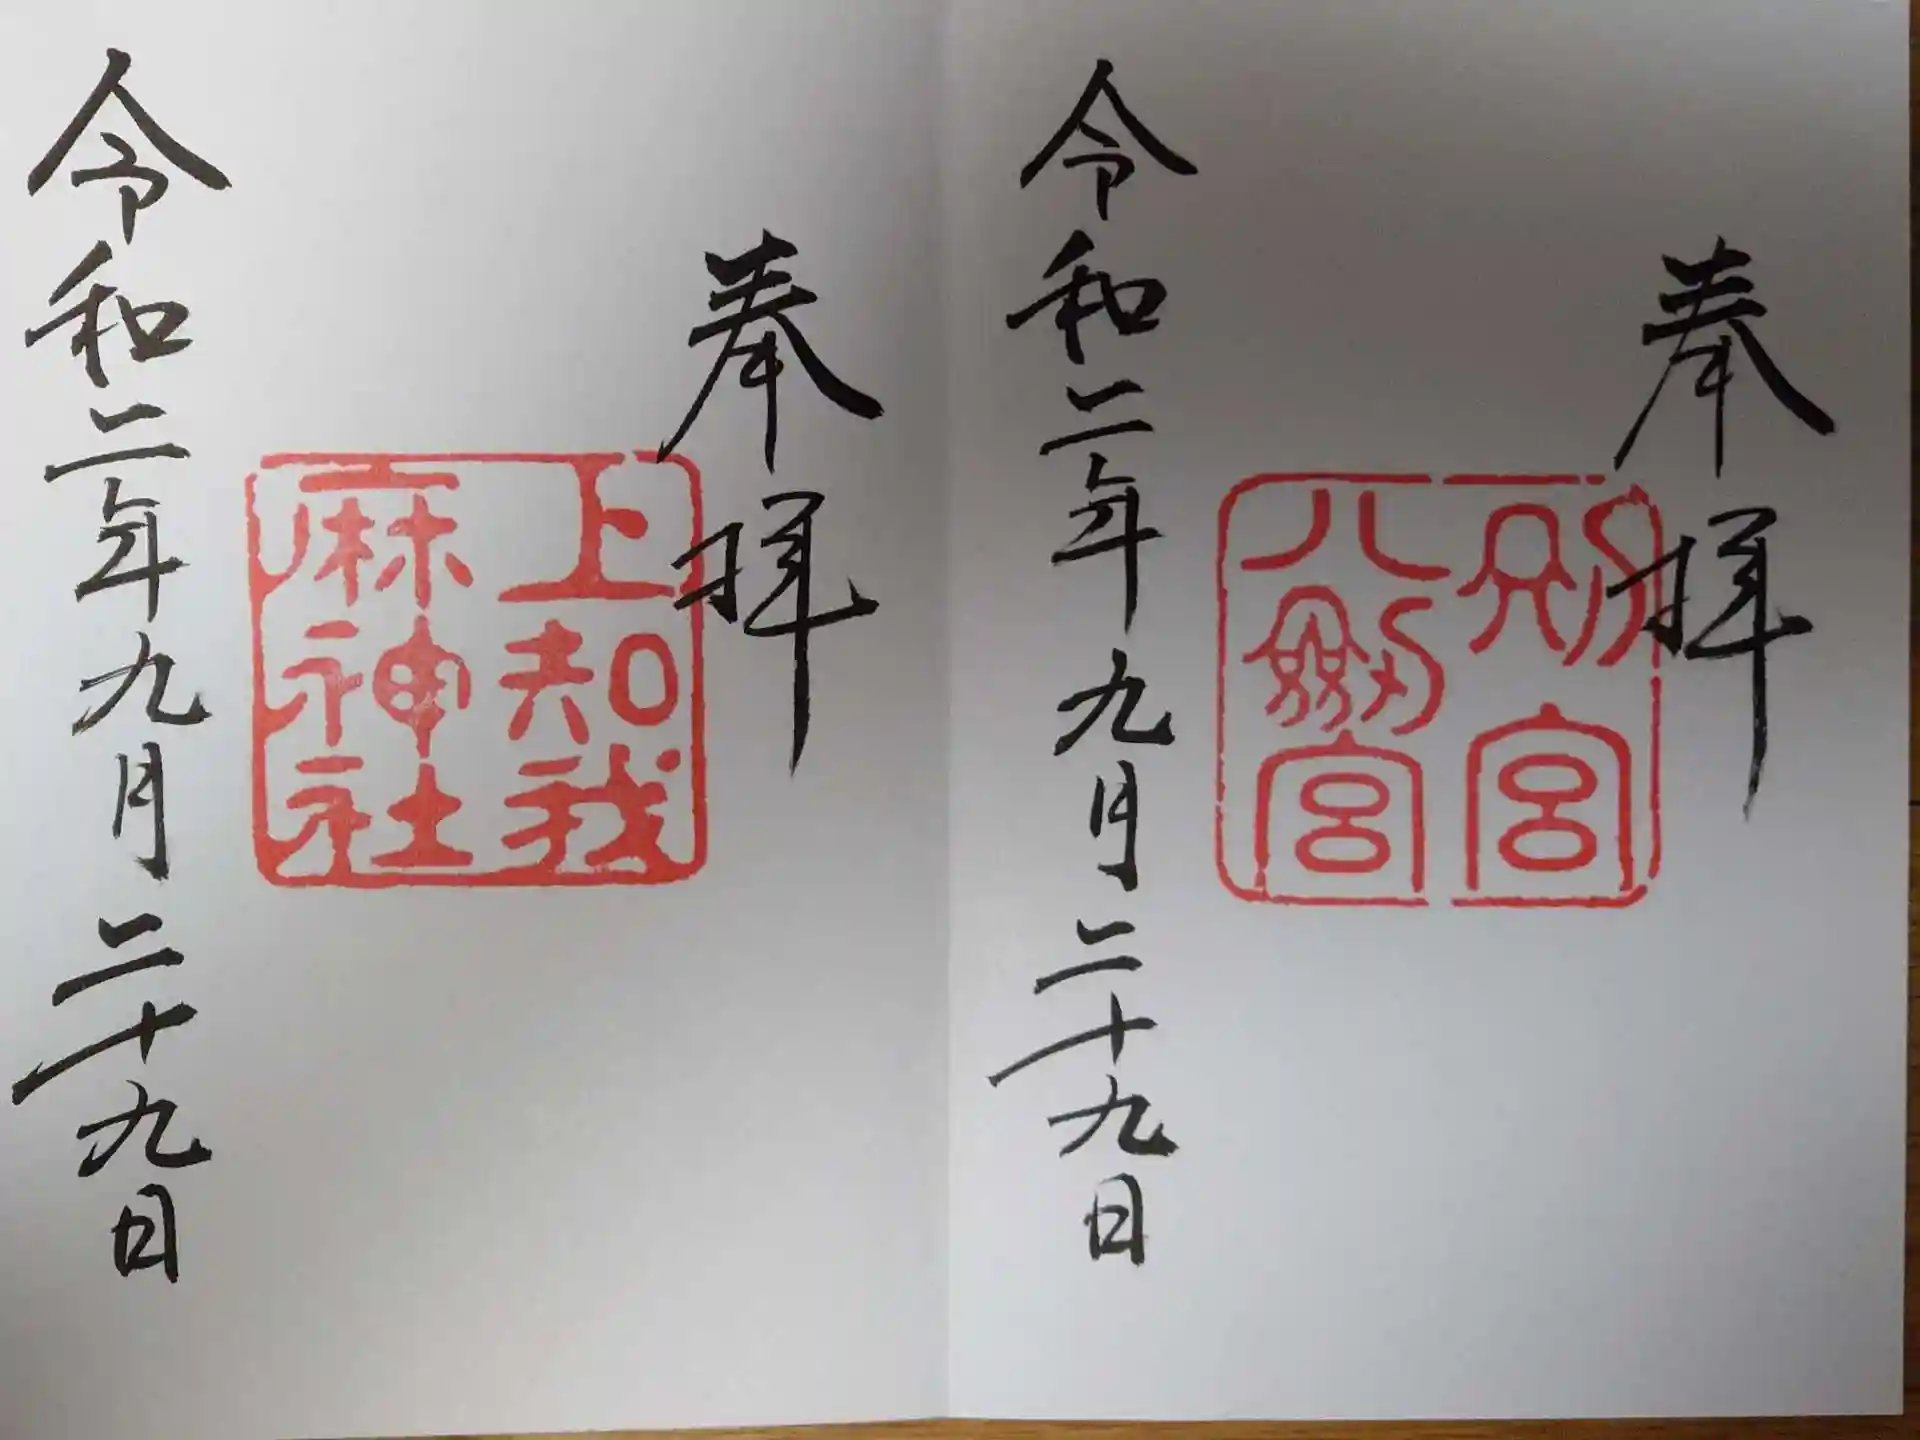 奉拝
別宮
八劔宮
令和二年九月二十九日
奉拝
上知我
麻神社
令和二年九月二十九日